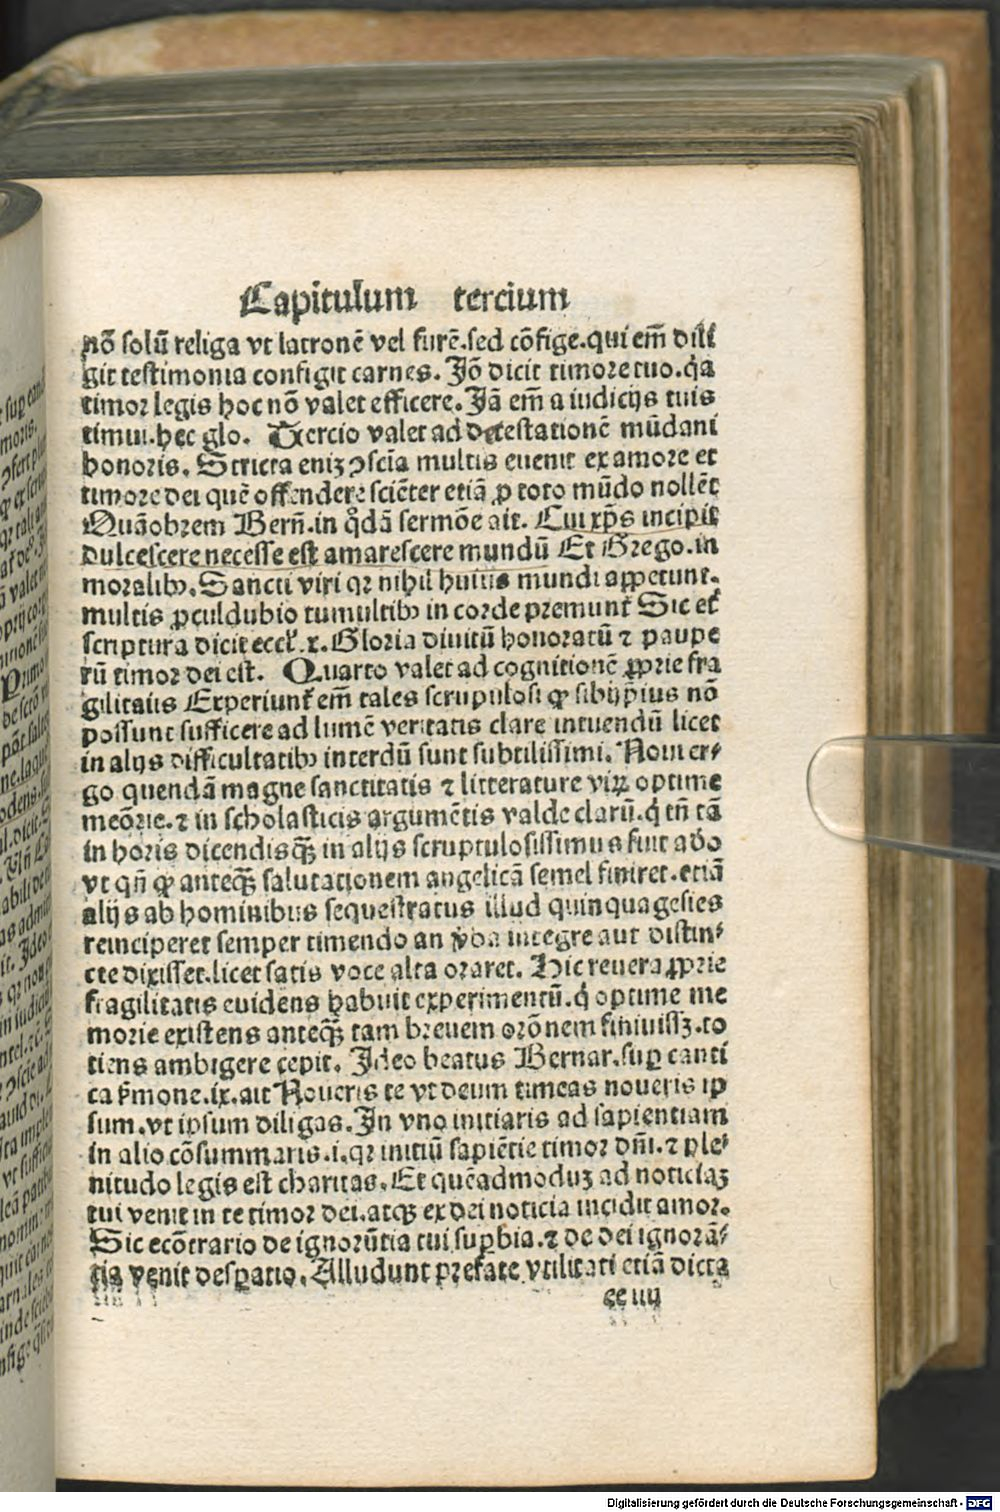 Capitulum tercium
nō solū religa vt latronē vel furē.sed cōfige.qui em̄ dili
git testimonia configit carnes. Jō dicit timore tuo.q̇a
timor legis hoc nō valet efficere. Jā em̄ a iudicijs tuis
timui.hec glo. Tercio valet ad detestationē mūdani
honoris. Stricta eniȝ ↄscīa multis euenit ex amore et
timore dei quē offendere sciēter etiā ꝓ toto mūdo nollēt
Quāobrem Bern̄.in q̊dā sermōe ait. Cui xp̄s incipit
dulcescere necesse est amarescere mundū Et Grego.in
moralibꝰ. Sancti viri qꝛ nihil huius mundi appetunt.
multis ꝓculdubio tumultibꝰ in corde premunt᷑ Sic et᷑
scriptura dicit eccl᷑.x. Gloria diuitū honoratū ⁊ paupe
rū timor dei est. Quarto valet ad cognitionē ꝓprie fra
gilitatis Experiunt᷑ em̄ tales scrupulosi ꝙ sibijpsius nō
possunt sufficere ad lumē veritatis clare intuendū licet
in alijs difficultatibꝰ interdū sunt subtilissimi. Noui er⸗
go quendā magne sanctitatis ⁊ litterature virꝝ optime
meōrie.⁊ in scholasticis argumētis valde clarū.q̇ tn̄ tā
in horis dicendis qꝫ̄ in alijs scruptulosissimus fuit adō
vt qn̄ ꝙ anteqꝫ̄ salutationem angelicā semel finiret.etiā
alijs ab hominibus sequestratus illud quinquagesies
reinciperet semper timendo an v̄ba integre aut distin⸗
cte dixisset.licet satis voce alta oraret. Hic reuera ꝓprie
fragilitatis euidens habuit experimentū.q̇ optime me
morie existens anteqꝫ̄ tam breuem orōnem finiuissꝫ.to
tiens ambigere cepit. Jdeo beatus Bernar.suꝑ canti
ca ẜmone.ix.ait Noueris te vt deum timeas noueris ip
sum.vt ipsum diligas. In vno initiaris ad sapientiam
in alio cōsummaris.i.qꝛ initiū sapiētie timor dn̄i.⁊ ple⸗
nitudo legis est charitas. Et quēadmoduȝ ad noticiaȝ
tui venit in te timor dei.atqꝫ ex dei noticia incidit amor.
Sic ecōtrario de ignorūtia tui suꝑbia.⁊ de dei ignorā⸗
tia venit desꝑatio. Alludunt prefate vtilitati etiā dicta
ee iiij
Digitalisierung gefördert durch die Deutsche Forschungsgemeinschaft - DFG